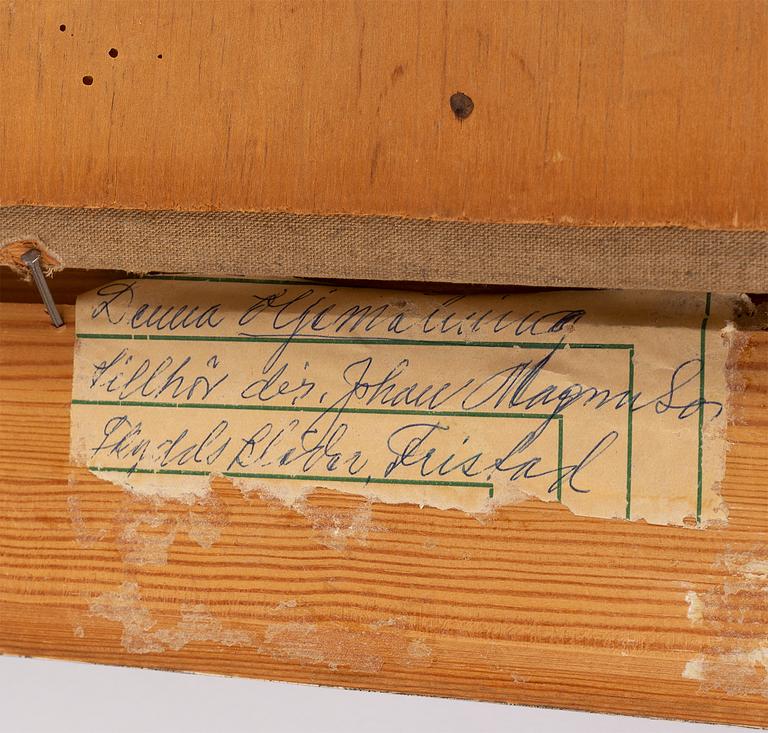 Denna Oljemålning
tillhör dir. Johan Magnuson
Skyddskläder, Fristad